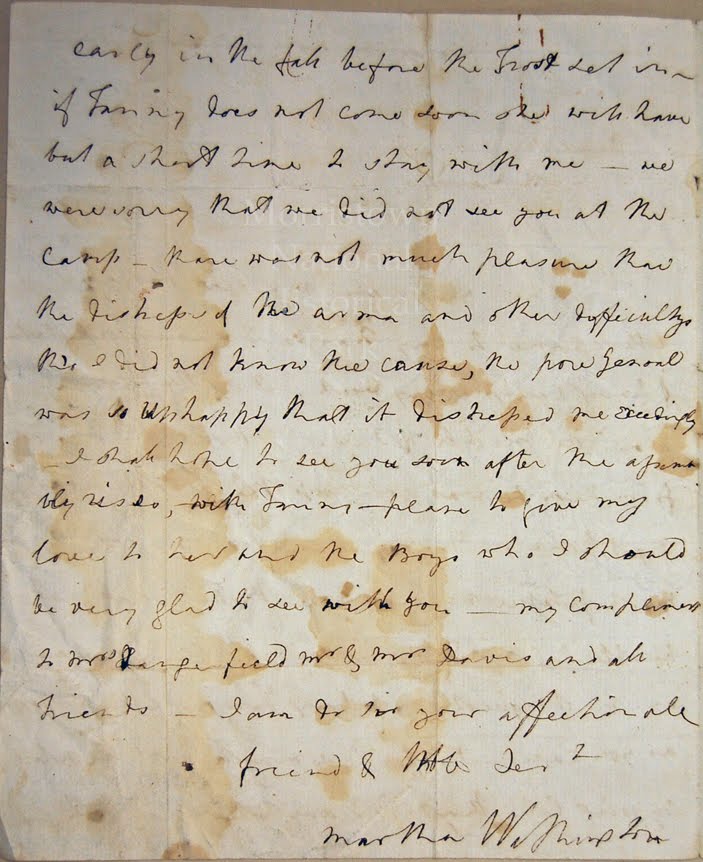 early in the fall before the Frost set in –
if Fanny does not come soon she will have
but a short time to stay with me – we
were sorry that we did not see you at the
Camp – thare was not much pleasure thar
the distress of the army and other difficultys
tho I did not know the cause, the pore General
was so unhappy that it distressed me exceedingly
– I shall hope to see you soon after the assem
bly rises, – with Fanny – please to give my
love to her and the Boys who I should
be very glad to see with you – my compliments
to Mrs Dangerfield Mr & Mrs Davis and all
Friends – I am dr sir your affectionate
friend & Hble Ser t
Martha Washington
Morristown
National
Historical